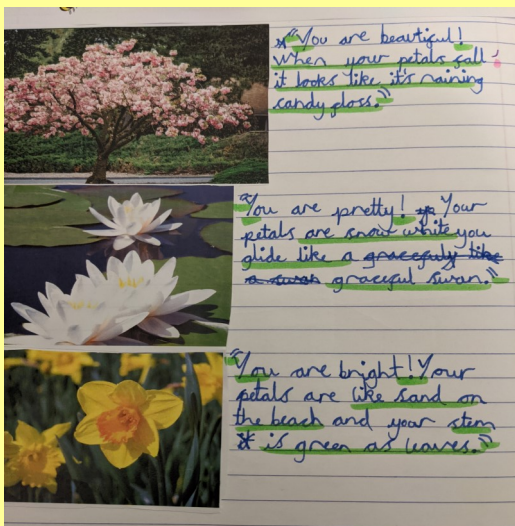 "You are beautiful!
When your petals fall
it looks like it's raining
candy floss."
"You are pretty! Your
petals are snow white you
glide like a gracefuly like
a swan graceful swan."
"You are bright! Your
petals are like sand on
the beach and your stem
is green as leaves."